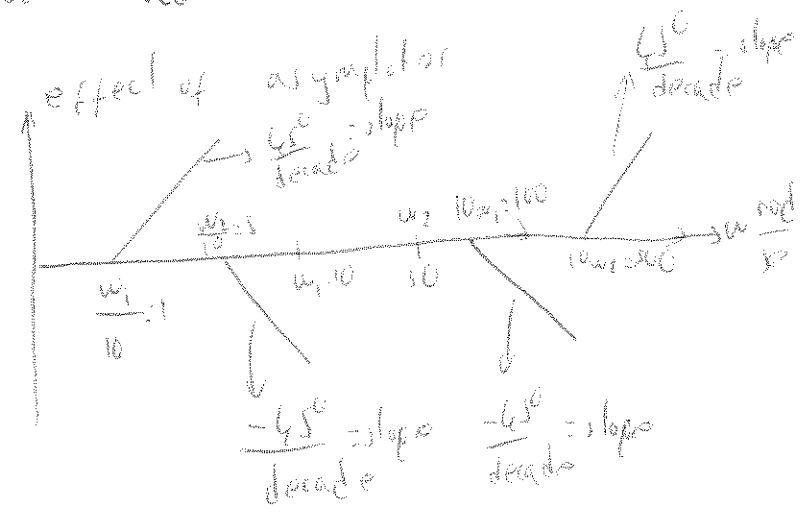 effect of asymptotes
45° / decade = slope
45° / decade = slope
w2 / 10 = 5
w2
10w1 = 100
w1 / 10 = 1
w1 = 10
50
10w2 = 500
w rad
-45° / decade = slope
-45° / decade = slope